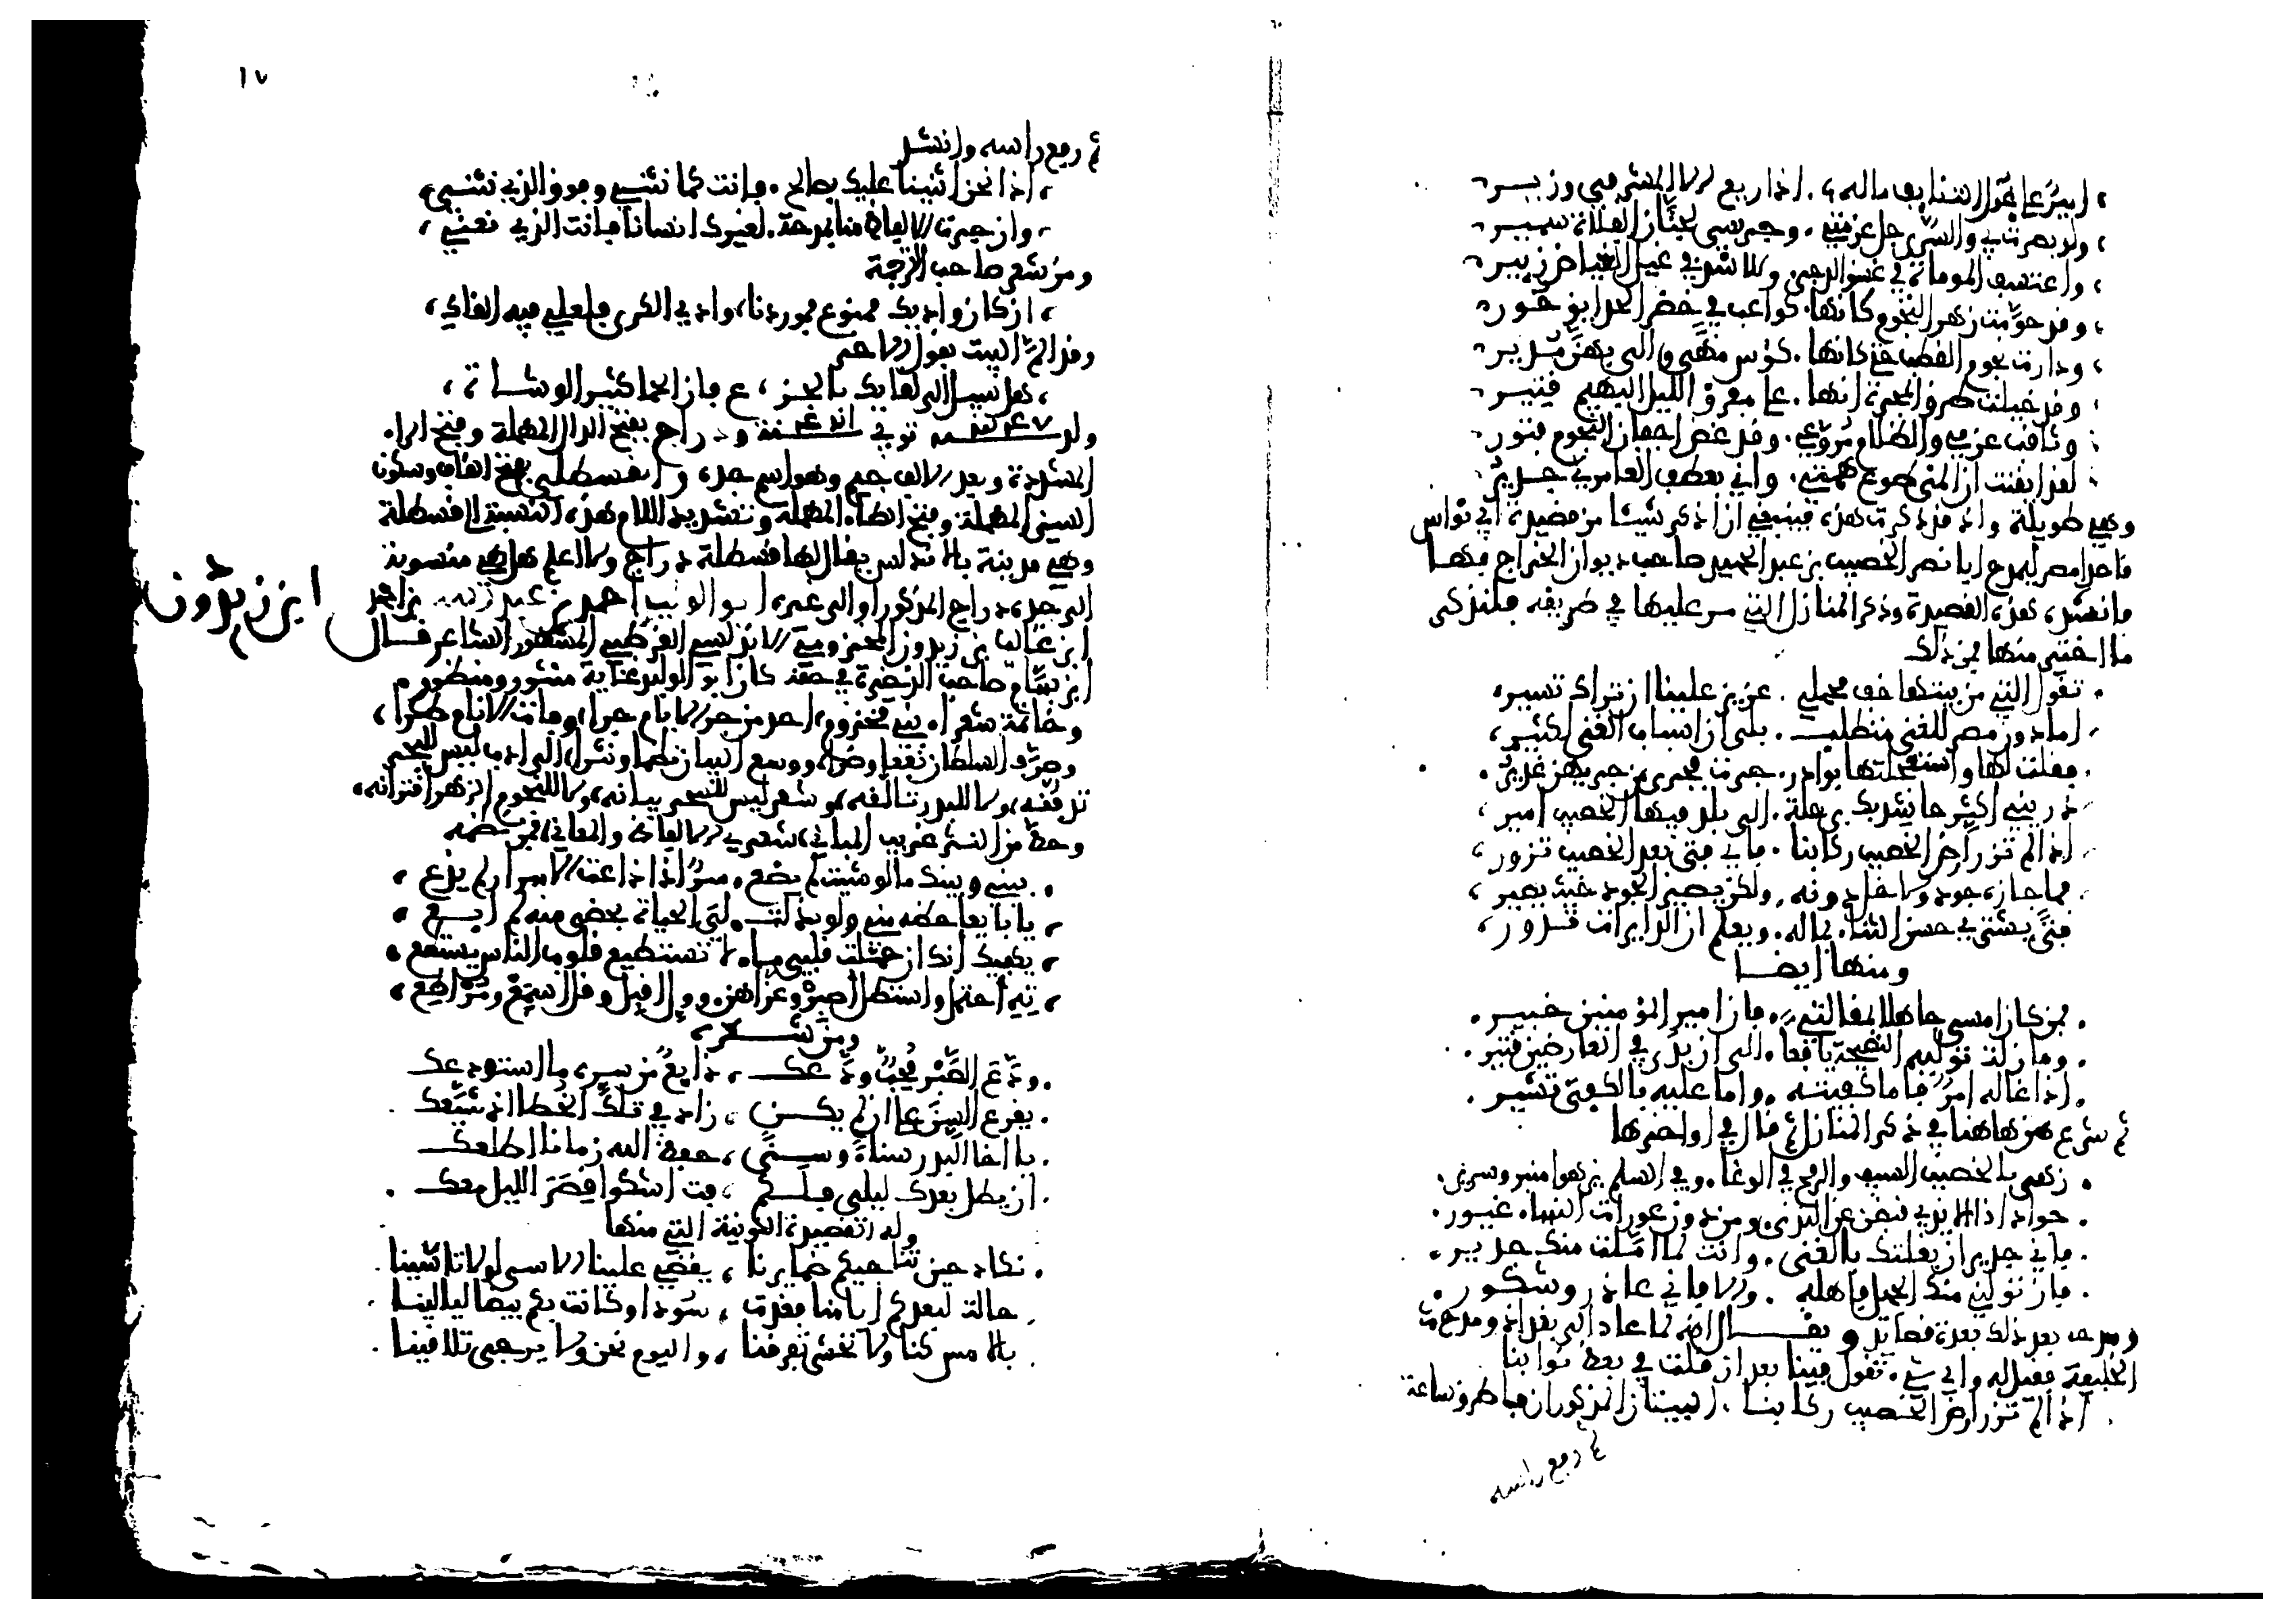 امير على غول التنايف ماله . اذا ريع الا المشرفي وزيـر
ولو بصرت بي والسرى جل عزمتي . وجرسي لجنان الفلاة سمير
واعتسف الموماة في غسق الدجى . وللاسد في غيل الغياض زئير
وقد حومت زهر النجوم كانها . كواعب في خضر الحدائق حور
ودارت نجوم القطب حتى كانها . كؤس مهى والى بهن مدير
وقد خيلت طرق المجرة انها . على مفرق الليل البهيم قتير
وثاقب عزمي والظلام مروع . وقد غض اجفان النجوم فتور
لقد ايقنت ان المنى طوع همتي . واني بعطف العامري جدير
وهي طويلة واذ قد ذكرت هذه فينبغي ان اذكر شيئا من قصيدة ابي نواس
قاصدا مصر ليمدح ابا نصر الخصيب بن عبد الحميد صاحب ديوان الخراج بها
فانشده هذه القصيدة وذكر المنازل التي مر عليها في طريقه فلنذكر
ما اختير منها فمن ذلك
تقول التي من بيتها خف محملي . عزيز علينا ان نراك تسير
اما دون مصر للغنى متطلب . بلى ان اسباب الغنى لكثير
فقلت لها واستعجلتها بوادر . جرت فجرى من جريهن غدير
ذريني اكثر حاسديك برحلة . الى بلد فيها الخصيب امير
اذا لم تزر ارض الخصيب ركابنا . فاي فتى بعد الخصيب تزور
فما جازه جود ولا حل دونه . ولكن يصير الجود حيث يصير
فتى يشتري حسن الثناء بماله . ويعلم ان الدايرات تدور
ومنها ايضـا
فمن كان امسى جاهلا بمقالتي . فان امير المؤمنين خبير
وما زلت توليه النصيحة يافعا . الى ان بدا في العارضين قتير
اذا غاله امر فاما كفيته . واما عليه بالكفي تشير
ثم شرع من هاهنا في ذكر المنازل ثم قال في اواخرها
زهى بالخصيب السيف والرمح في الوغا . وفي السلم يزهوا منبر وسرير
جواد اذا الايدي قبضن عن الندى . ومن دون عورات النساء غيور
فاني جدير ان بلغتك بالغنى . وانت لما املت منك جدير
فان تولني منك الجميل فاهله . والا فاني عاذر وشكور
ومدحه بعد ذلك بعدة قصائد ويقـال انه لما عاد الى بغداد ومدح
الخليفة فقيل له واي شي . تقول فينا بعد ان قلت في بعض نوابنا
اذا لم تزر ارض الخصيب ركابنا . البيتان المذكوران فاطرق ساعة
ثم رفع راسه
١٧
ثم رفع راسه وانشد
اذا نحن اثنينا عليك بصالح . فانت كما نثني وفوق الذي نثني
وان جرت الالفاظ منا بمدحة . لغيرك انسانا فانت الذي نعني
ومن شعر صاحب الترجمة
ان كان واديك ممنوع فموعدنا ، وادي الكرى فلعلي فيه القاك
وقد الم البيت بقول الاخر
هل سبيل الى لقايك بالجز ، ع فان الحما كثير الوشاة
ولد سنه توفي سنه ودراج بفتح الدال المهملة وفتح الراء
المشددة وبعد الالف جيم وهو اسم جده ، والقسطلي بفتح القاف وسكون
السين المهملة وفتح الطاء المهملة وتشديد اللام هذه النسبة الى قسطلة
وهي مدينة بالاندلس يقال لها قسطلة دراج ولا اعلم هل هي منسوبة
الى جده دراج المذكور او الى غيره ، ابو الوليد احمد بن عبد الله بن احمد
ابن زيدون
ابن غالب بن زيدون المخزومي الاندلسي القرطبي المشهور الشاعر قـال
ابن بسام صاحب الذخيرة في حقه كان ابو الوليد غاية منثور ومنظوم
وخاتمة شعراء بني مخزوم ، احد من جر الايام جرا ، وفات الانام طرا ،
وصرف السلطان نفعا وضرا ، ووسع البيان نظما ونثرا ، الى ادب ليس للبحر
تدفقه ، ولا للبدر تالقه ، وشعر ليس للسحر بيانه ، ولا للنجوم الزهر اقترانه ،
وحظ من النثر غريب المباني ، شعري الالفاظ والمعاني ، فمن نظمه
بيني وبينك مالو شئت لم يضع . سر اذا ذاعت الاسرار لم يذع
يا بايعا حظه مني ولو بذلت . لي الحياة بحظي منه لم ابـع
يكفيك انك ان حملت قلبي ما . لا تستطيع قلوب الناس يستطع
ته احتمل واستطل اصبر وعز اهن . وول اقبل وقل اسمع ومر اطع
ومن شـعره
ودع الصبر محب ودعك ، ذايع من سره ما استودعك
يقرع السن على ان لم يكـن ، زاد في تلك الخطا اذ شيعك
يا اخا البدر سناء وسـنى ، حفظ الله زمانا اطلعك
ان يطل بعدك ليلى فلـكم ، بت اشكوا قصر الليل معك
وله القصيدة النونية التي منها
نكاد حين تناجيكم ضمايرنا ، يقضي علينا الاسى لولا تاسينا
حالت لبعدكم ايامنا فغدت ، سودا وكانت بكم بيضا ليالينـا
بالامس كنا ولا نخشى تفرقنا ، واليوم نحن ولا يرجى تلاقينا